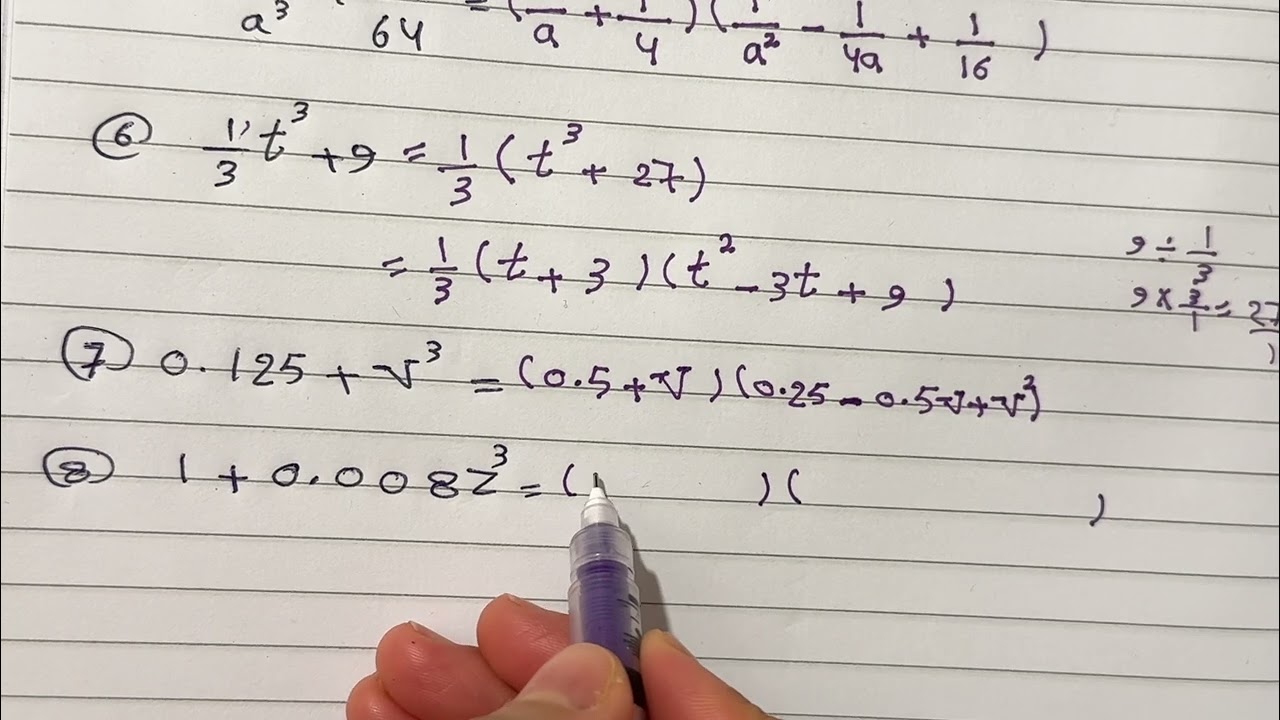 a³ 64 = (1/a + 1/4)(1/a² - 1/4a + 1/16)
⑥ 1/3 t³ + 9 = 1/3 (t³ + 27)
= 1/3 (t + 3)(t² - 3t + 9)
9 ÷ 1/3
9 × 3/1 = 27/1
⑦ 0.125 + v³ = (0.5 + v)(0.25 - 0.5v + v²)
⑧ 1 + 0.008z³ = (1 )( )